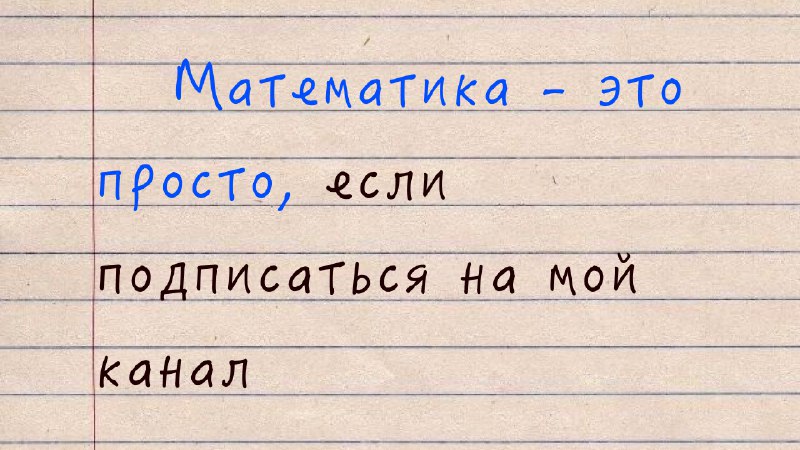 Математика - это
просто, если
подписаться на мой
канал